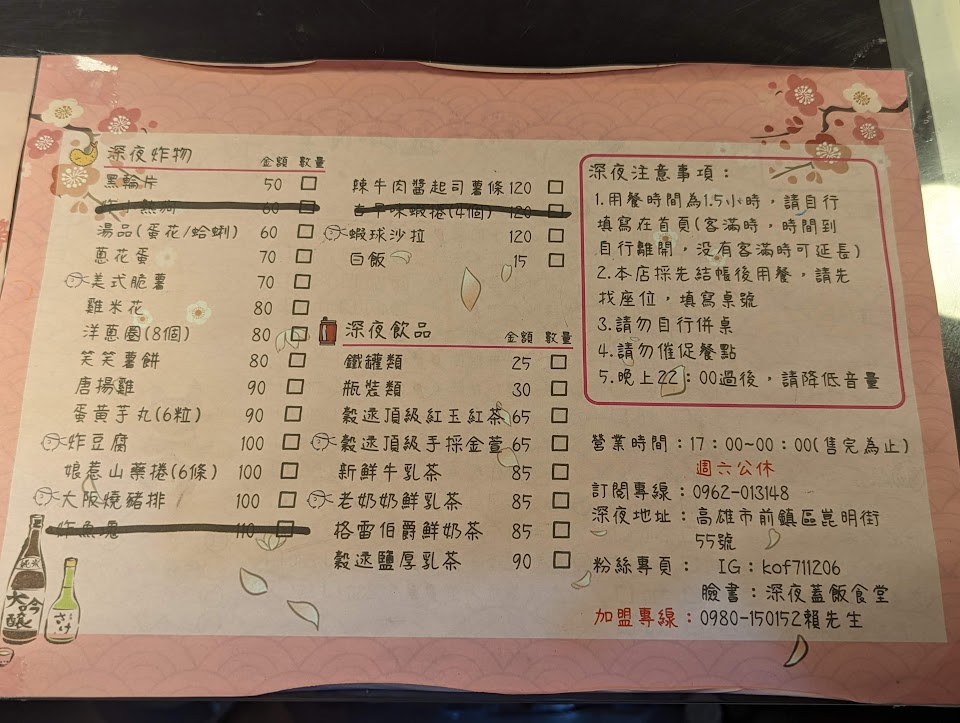 深夜炸物 金額 數量
黑輪片 50
60
湯品(蛋花/蛤蜊) 60
蔥花蛋 70
美式脆薯 70
雞米花 80
洋蔥圈(8個) 80
笑笑薯餅 80
唐揚雞 90
蛋黃芋丸(6粒) 90
炸豆腐 100
娘惹山藥捲(6條) 100
大阪燒豬排 100
炸魚塊 110
辣牛肉醬起司薯條 120
味蝦捲(4個) 120
蝦球沙拉 120
白飯 15
深夜飲品 金額 數量
鐵罐類 25
瓶裝類 30
穀遠頂級紅玉紅茶 65
穀遠頂級手採金萱 65
新鮮牛乳茶 85
老奶奶鮮乳茶 85
格雷伯爵鮮奶茶 85
穀遠鹽厚乳茶 90
深夜注意事項：
1.用餐時間為1.5小時，請自行
填寫在首頁(客滿時，時間到
自行離開，没有客滿時可延長)
2.本店採先結帳後用餐，請先
找座位，填寫桌號
3.請勿自行併桌
4.請勿催促餐點
5.晚上22：00過後，請降低音量
營業時間：17：00~00：00(售完為止)
週六公休
訂閱專線：0962-013148
深夜地址：高雄市前鎮區崑明街
55號
粉絲專頁： IG：kof711206
臉書：深夜蓋飯食堂
加盟專線：0980-150152賴先生
純米
大吟釀
さけ